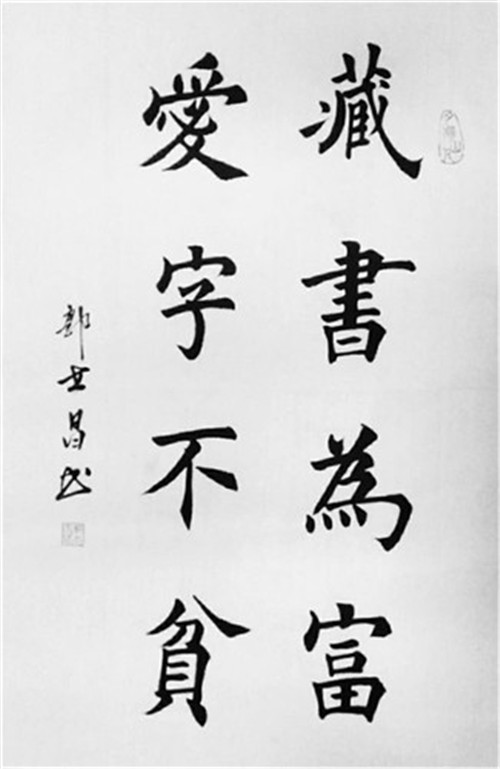 藏書為富
愛字不貧
郭世昌书